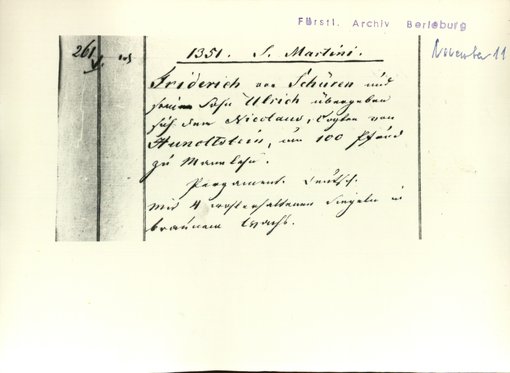 Fürstl. Archiv Berleburg
November 11
261
1351. S. Martini.
Friderich von Schüren und
sein Sohn Ulrich übergeben
sich dem Nicolaus, Vogten von
Hunoltstein, um 100 Pfund
zu Mannlehn.
Pergament. Deutsch.
Mit 4 wohlerhaltenen Siegeln in
braunem Wachs.